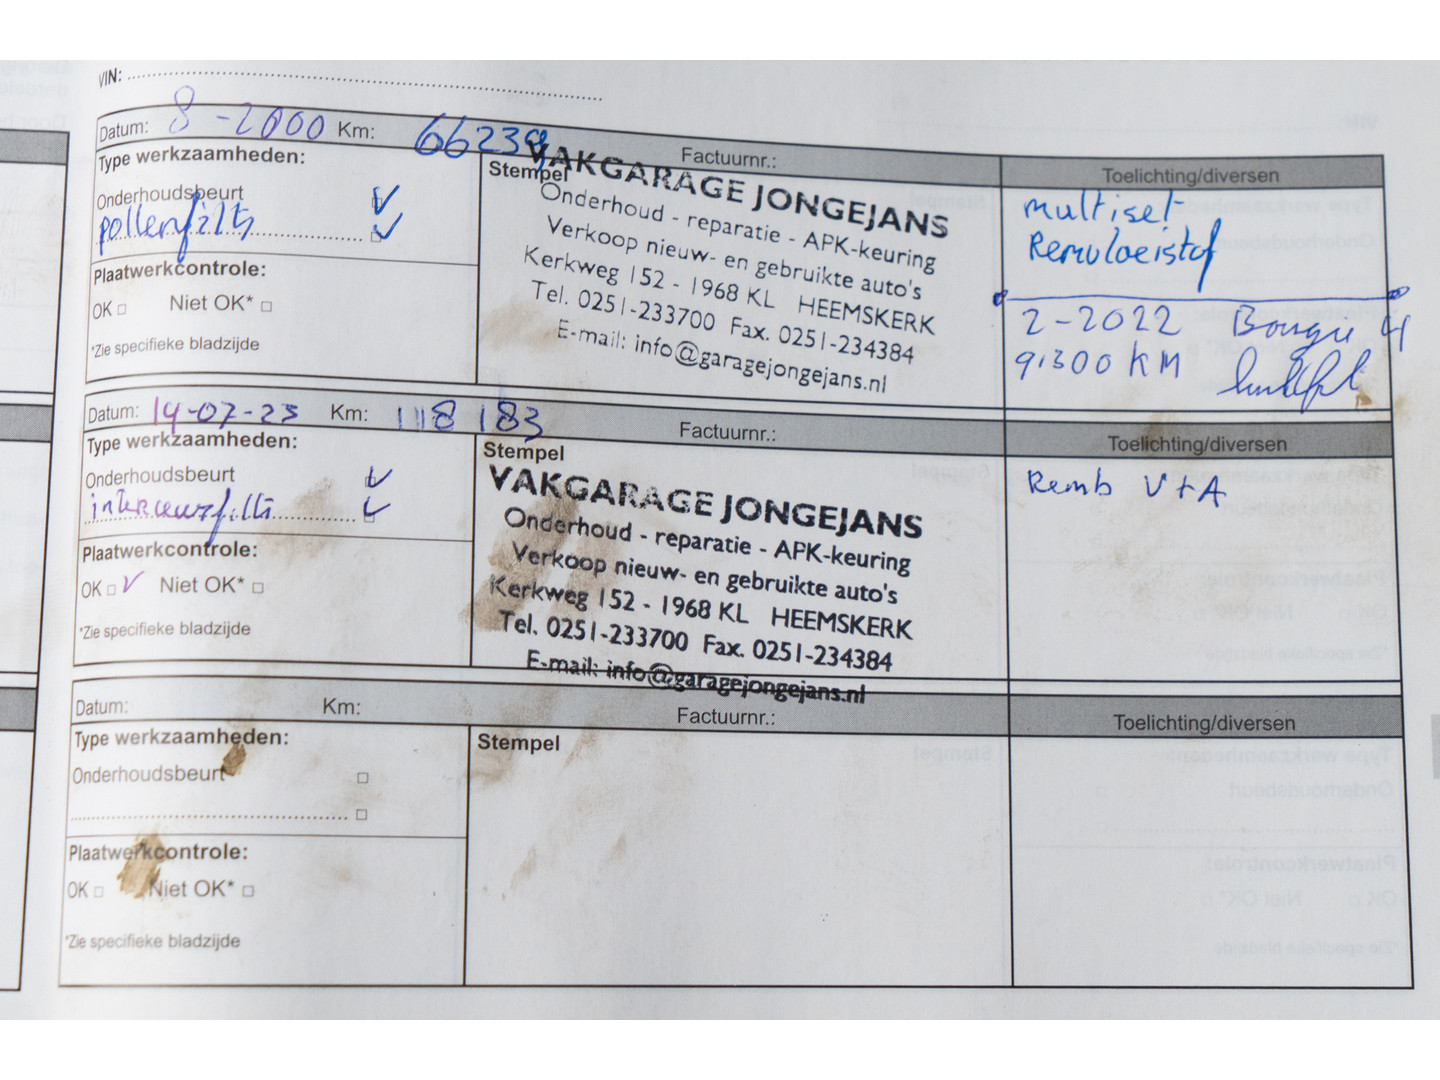 VIN:
Datum: 8-2000 Km: 66239 Factuurnr.:
Type werkzaamheden:
Onderhoudsbeurt
pollenfilts
Plaatwerkcontrole:
OK Niet OK*
*Zie specifieke bladzijde
Stempel
VAKGARAGE JONGEJANS
Onderhoud - reparatie - APK-keuring
Verkoop nieuw- en gebruikte auto's
Kerkweg 152 - 1968 KL HEEMSKERK
Tel. 0251-233700 Fax. 0251-234384
E-mail: info@garagejongejans.nl
Toelichting/diversen
multiset
Remvloeistof
2-2022 Bougie 4
9.300 KM
Datum: 14-07-23 Km: 118 183 Factuurnr.:
Type werkzaamheden:
Onderhoudsbeurt
interieurfilts
Plaatwerkcontrole:
OK Niet OK*
*Zie specifieke bladzijde
Stempel
VAKGARAGE JONGEJANS
Onderhoud - reparatie - APK-keuring
Verkoop nieuw- en gebruikte auto's
Kerkweg 152 - 1968 KL HEEMSKERK
Tel. 0251-233700 Fax. 0251-234384
E-mail: info@garagejongejans.nl
Toelichting/diversen
Remb V+A
Datum: Km: Factuurnr.:
Type werkzaamheden:
Onderhoudsbeurt
Plaatwerkcontrole:
OK Niet OK*
*Zie specifieke bladzijde
Stempel
Toelichting/diversen